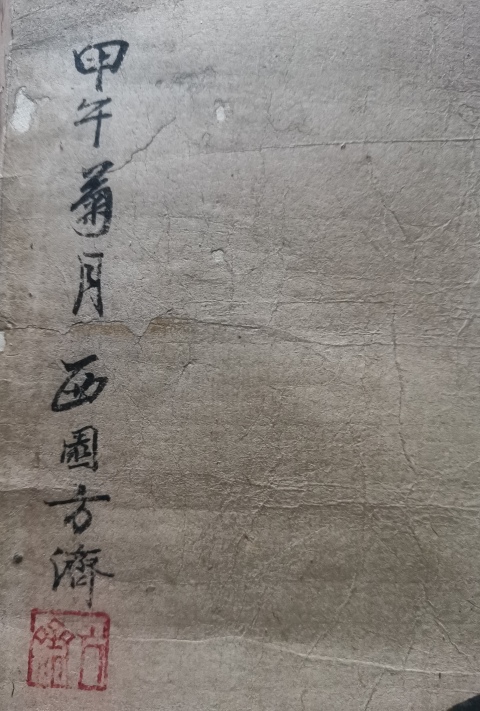 甲午菊月西園方濟